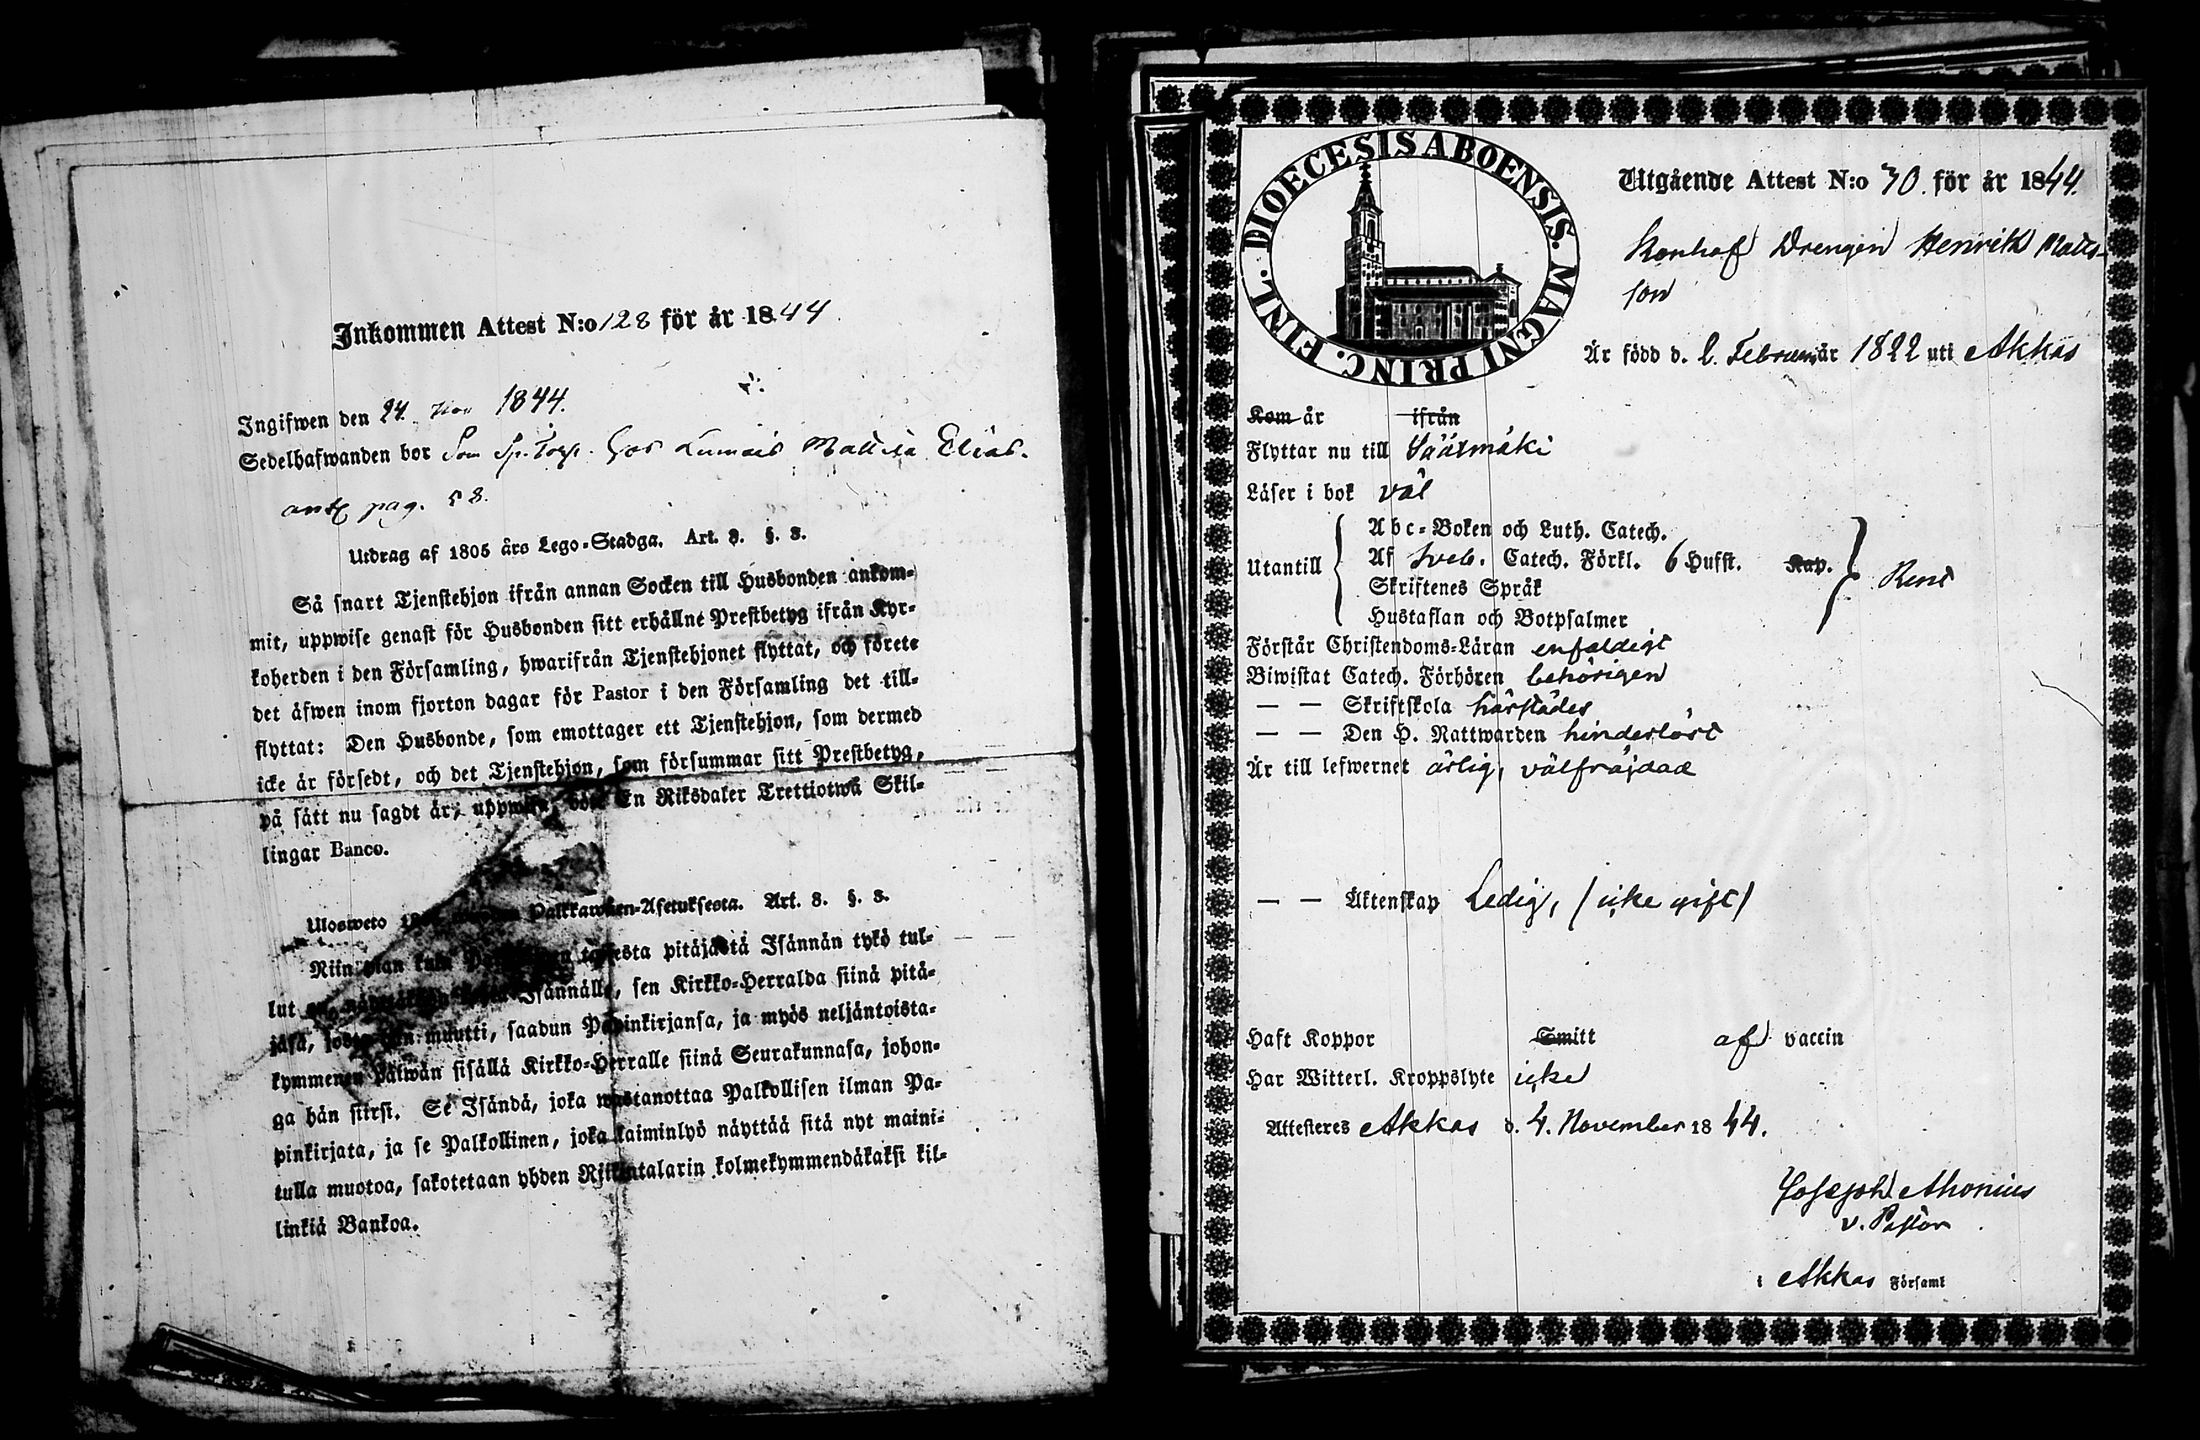 Inkommen Attest N:o 128 för år 1844
Ingifwen den 24. Nov 1844.
Sedelhafwanden bor Som Sp. Torp. hos Lumais Mattila Elias.
ant pag. 58.
Utdrag af 1805 års Lego-Stadga. Art. 8. §. 8.
Så snart Tjenstehjon ifrån annan Socken till Husbonden ankom-
mit, uppwise genast för Husbonden sitt erhållne Prestbetyg ifrån Kyr-
koherden i den Församling, hwarifrån Tjenstehjonet flyttat, och förete
det äfwen inom fjorton dagar för Pastor i den Församling det till-
flyttat: Den Husbonde, som emottager ett Tjenstehjon, som dermed
icke är försedt, och det Tjenstehjon, som försummar sitt Prestbetyg,
på sätt nu sagdt är, uppwisa, böte En Riksdaler Trettiotwå Skil-
lingar Banco.
Ulosweto Palkkawäen-Asetuksesta. Art. 8. §. 8.
Niin pian kuin toisesta pitäjästä Isännän tykö tul-
lut Isännälle, sen Kirkko-Herralda siinä pitä-
jäsä, josta hän muutti, saadun Papinkirjansa, ja myös neljäntoista-
kymmenen päiwän sisällä Kirkko-Herralle siinä Seurakunnasa, johon-
ga hän siirsi. Se Isändä, joka wastanottaa Palkollisen ilman Pa-
pinkirjata, ja se Palkollinen, joka laiminlyö näyttää sitä nyt maini-
tulla muotoa, sakotetaan yhden Riikintalarin kolmekymmendäkaksi kil-
linkiä Bankoa.
DIOECESIS ABOENSIS. MAGNI PRINC. FINL.
Utgående Attest N:o 70. för år 1844.
Drengen Henrik Matts-
son
Är född d. 2. Februar är 1822 uti Akkas
Kom år ifrån
Flyttar nu till Sääxmäki
Läser i bok väl
Utantill
Abc-Boken och Luth. Catech.
Af Sveb. Catech. Förkl. 6 Hufst. Kap.
Skriftenes Språk
Hustaflan och Botpsalmer
Rent
Förstår Christendoms-Läran enfaldigt
Biwistat Catech. Förhören behörigen
— — Skriftskola härstädes
— — Den H. Nattwarden hinderlöst
Är till lefwernet ärlig, välfräjdad
— — Äktenskap Ledig, (icke gift)
Haft Koppor Smitt af vaccin
Har Witterl. Kroppslyte icke
Attesteres Akkas d. 4. November 1844.
Joseph Ahonius
v. Pastor
i Akkas Församl